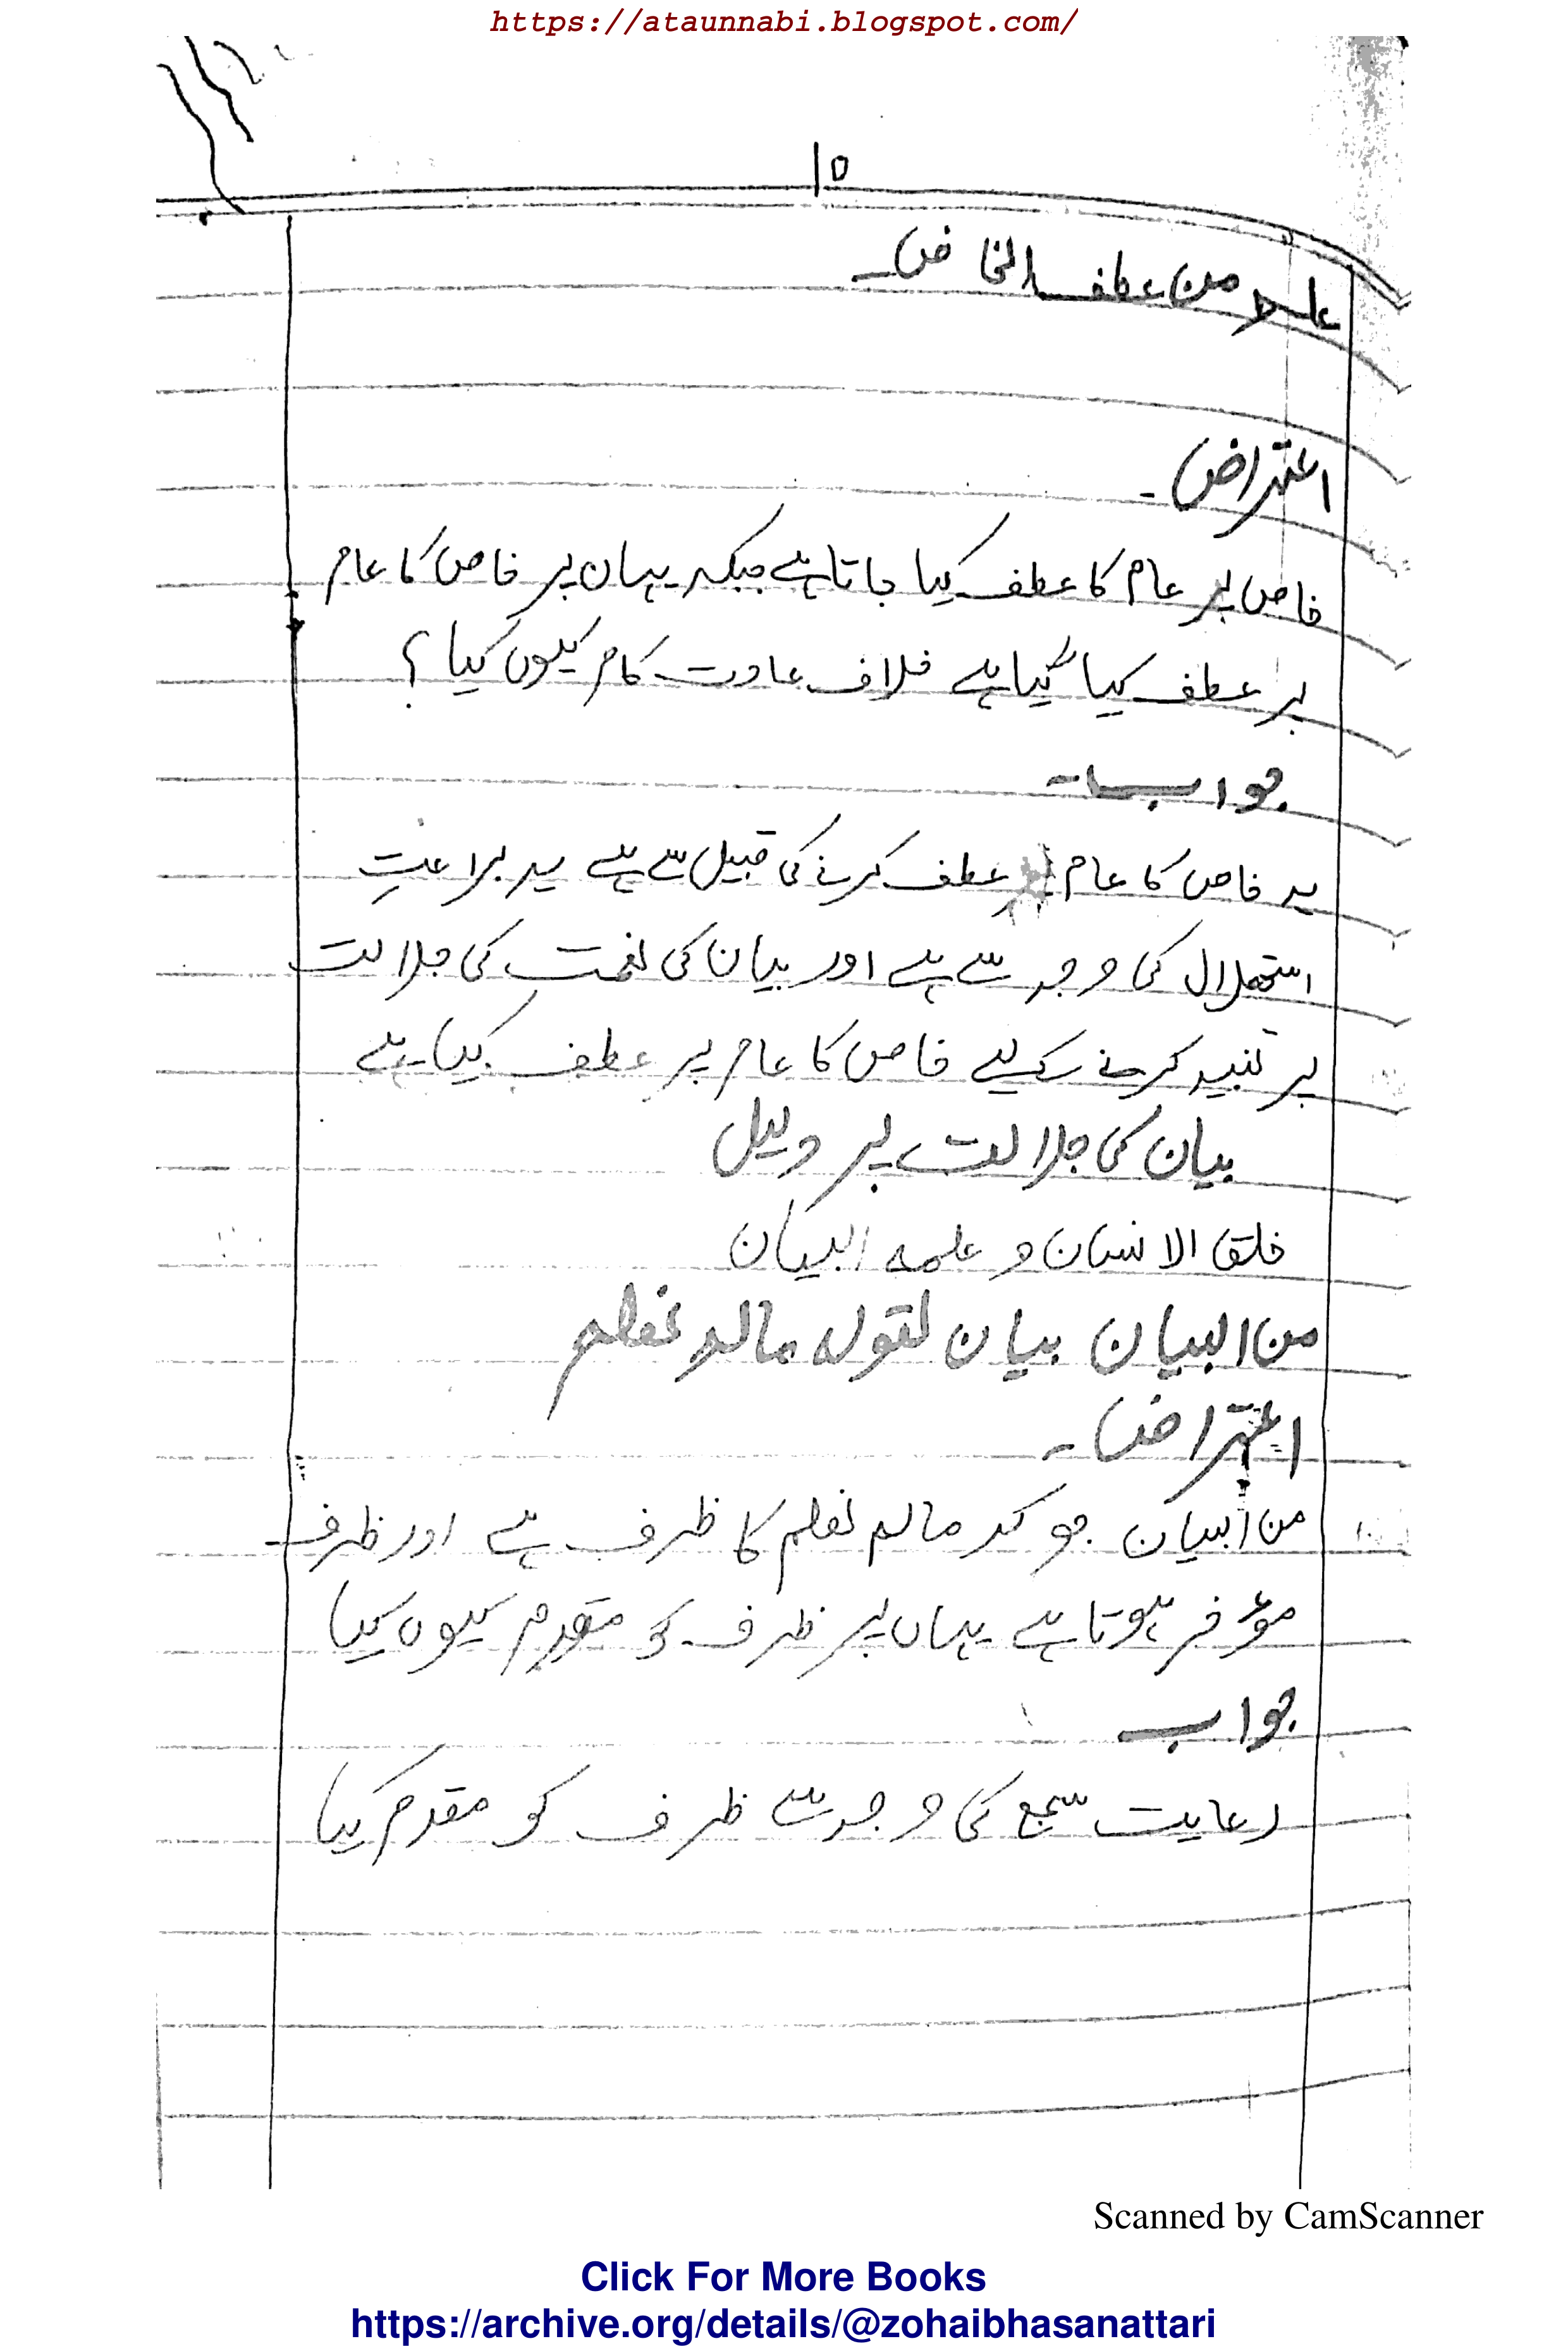 https://ataunnabi.blogspot.com/
۱۵
علم من عطف الخاص۔
اعتراض۔
خاص پر عام کا عطف کیا جاتا ہے جبکہ یہاں پر خاص کا عام
پر عطف کیا گیا ہے خلاف عادت کام کیوں کیا؟
جواب۔
یہ خاص کا عام پر عطف کرنے کی قبیل سے ہے یہ براعتِ
استھلال کی وجہ سے ہے اور بیان کی نعمت کی جلالت
پر تنبیہ کرنے کیلیے خاص کا عام پر عطف کیا ہے
بیان کی جلالت پر دلیل
خلق الانسان و علمہ البیان
من البیان بیان لقولہ مالم نعلم
اعتراض۔
من البیان جو کہ مالم نعلم کا ظرف ہے اور ظرف
مؤخر ہوتا ہے یہاں پر ظرف کو مقدم کیوں کیا
جواب
رعایت سجع کی وجہ سے ظرف کو مقدم کیا
Scanned by CamScanner
Click For More Books
https://archive.org/details/@zohaibhasanattari